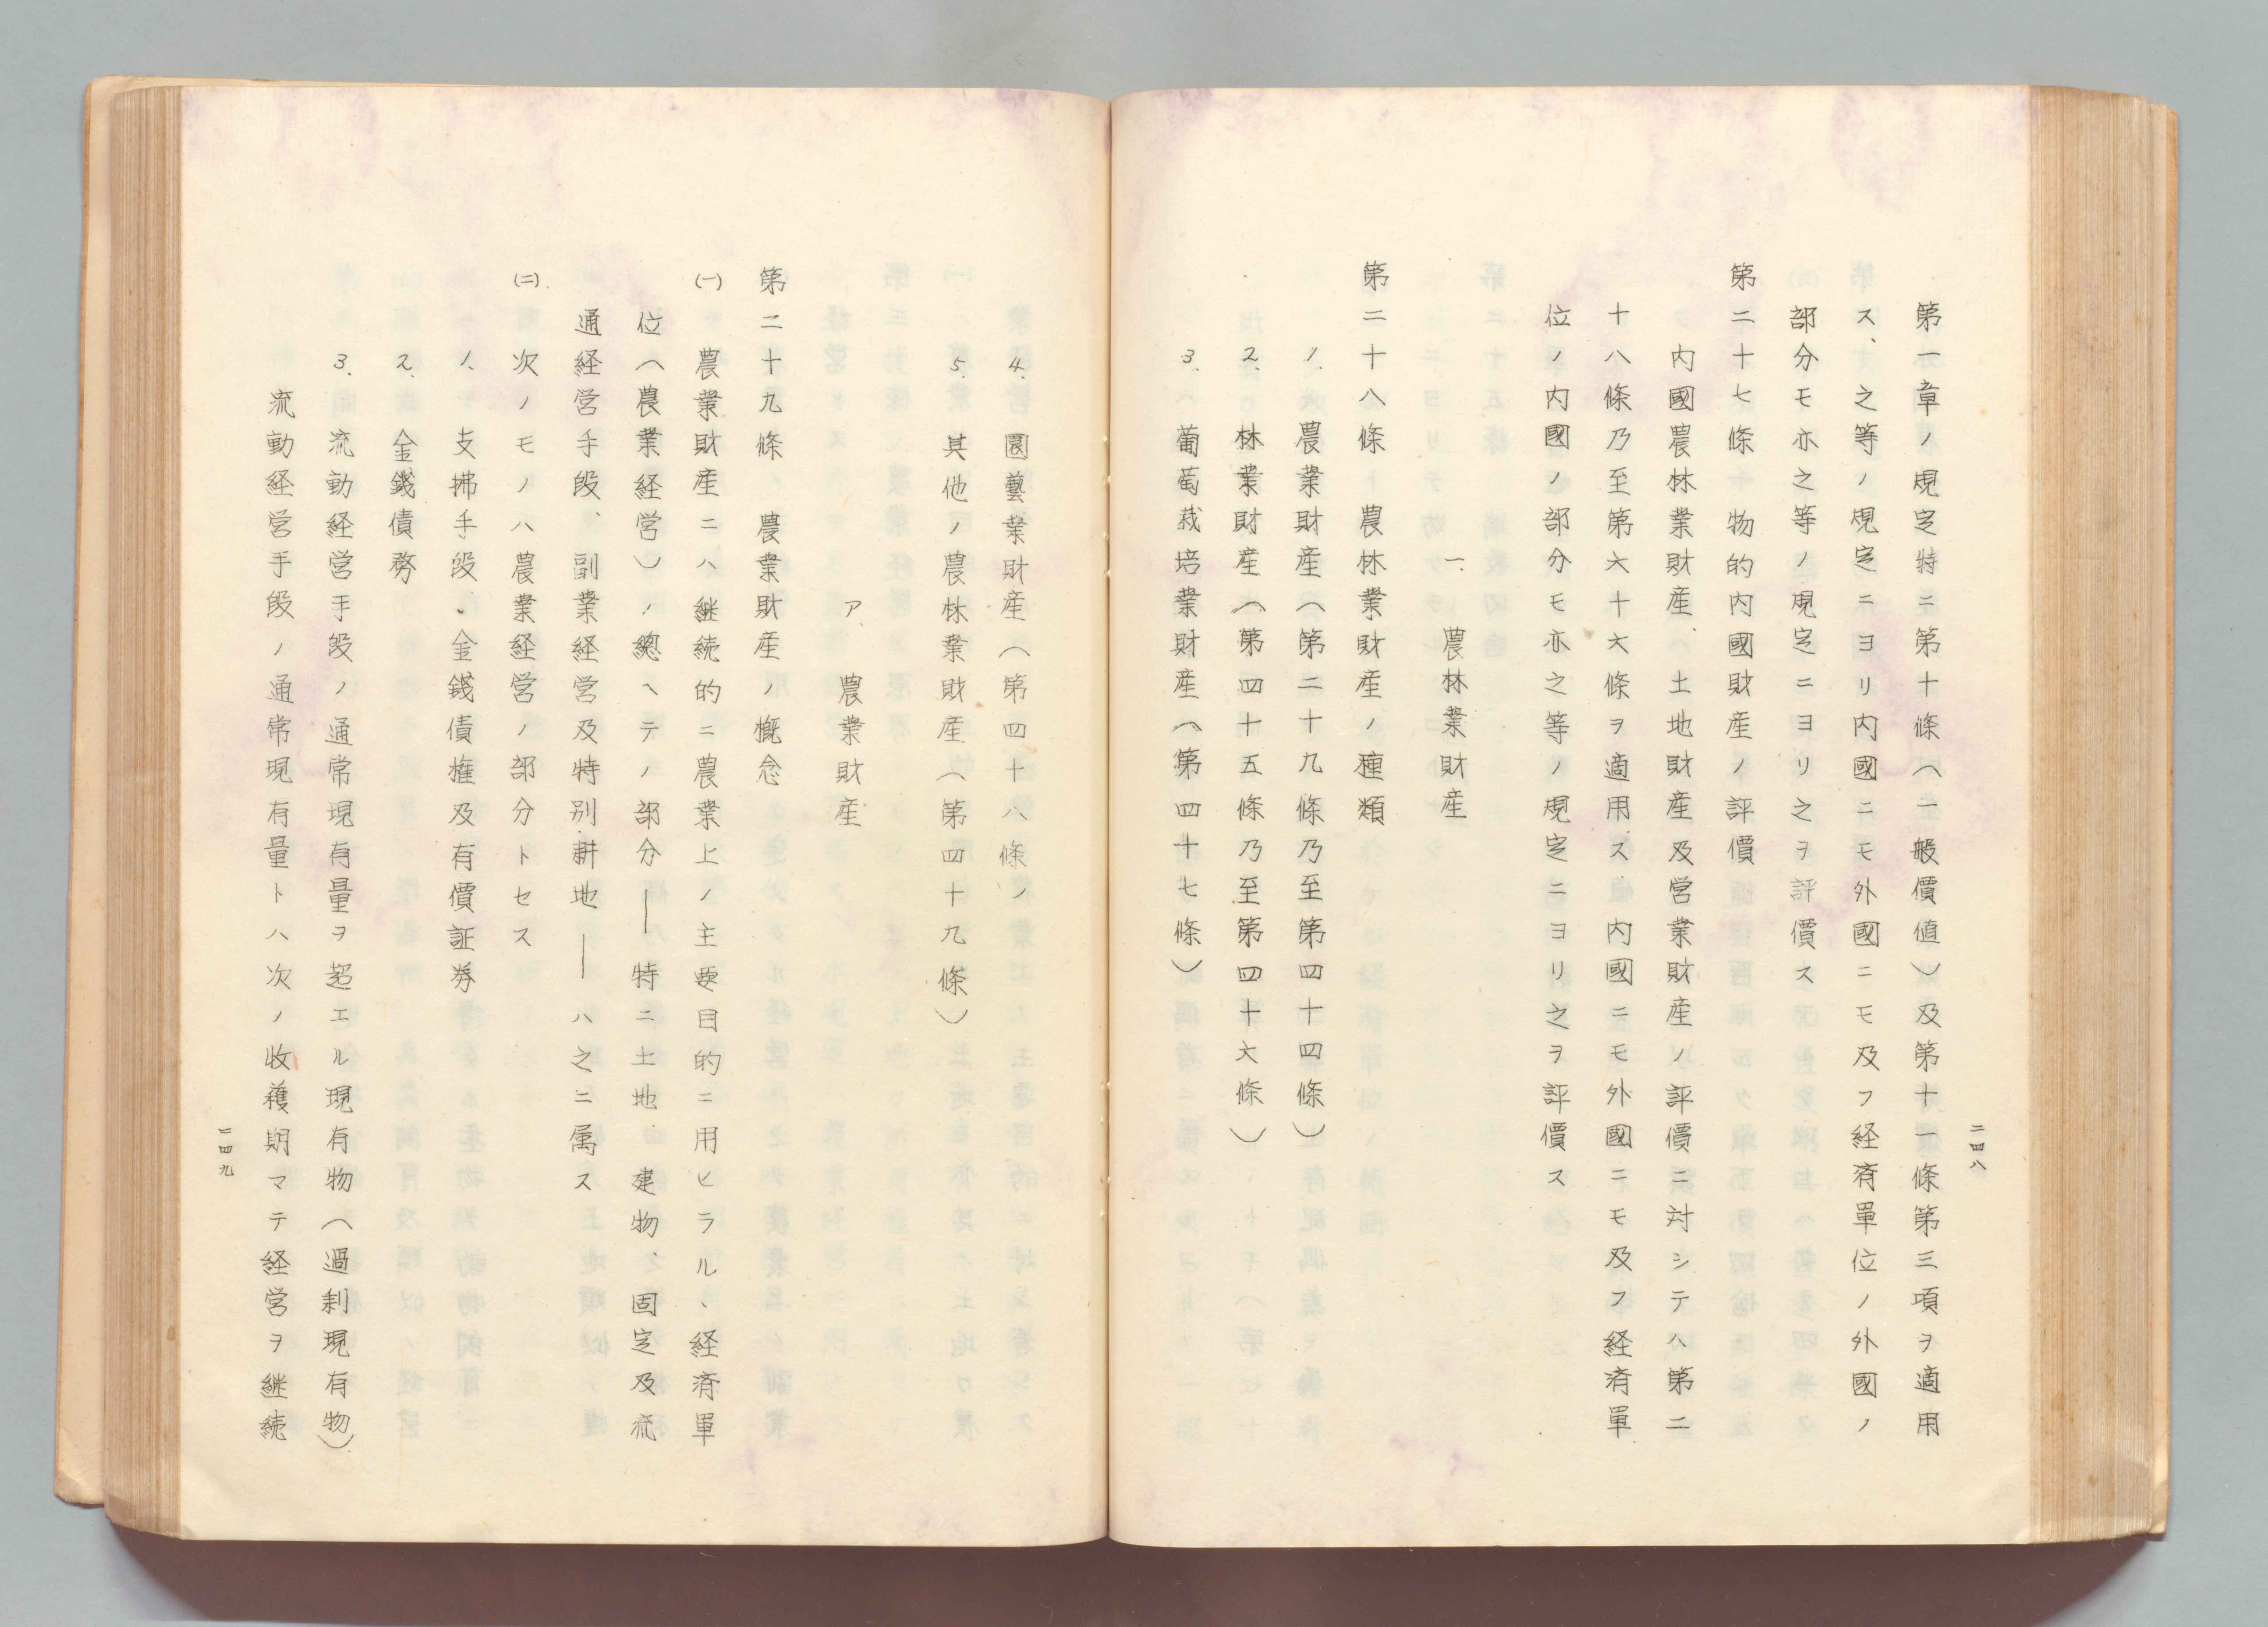 二四八
第一章ノ規定特ニ第十條（一般價値）及第十一條第三項ヲ適用
ス、之等ノ規定ニヨリ内國ニモ外國ニモ及フ経済單位ノ外國ノ
部分モ亦之等ノ規定ニヨリ之ヲ評價ス
第二十七條　物的内國財産ノ評價
内國農林業財産、土地財産及営業財産ノ評價ニ対シテハ第二
十八條乃至第六十六條ヲ適用ス　内國ニモ外國ニモ及フ経済單
位ノ内國ノ部分モ亦之等ノ規定ニヨリ之ヲ評價ス
一、農林業財産
第二十八條　農林業財産ノ種類
1.　農業財産（第二十九條乃至第四十四條）
2.　林業財産（第四十五條乃至第四十六條）
3.　葡萄栽培業財産（第四十七條）
4.　園藝業財産（第四十八條ノ
5.　其他ノ農林業財産（第四十九條）
ア　農業財産
第二十九條　農業財産ノ慨念
(一)　農業財産ニハ継続的ニ農業上ノ主要目的ニ用ヒラル、経済單
位（農業経営）ノ總ヘテノ部分――特ニ土地、建物、固定及流
通経営手段、副業経営及特別耕地――ハ之ニ属ス
(二)　次ノモノハ農業経営ノ部分トセス
1.　支拂手段、金錢債権及有價証券
2.　金錢債務
3.　流動経営手段ノ通常現有量ヲ超エル現有物（過剰現有物）
流動経営手段ノ通常現有量トハ次ノ收穫期マテ経営ヲ継続
二四九